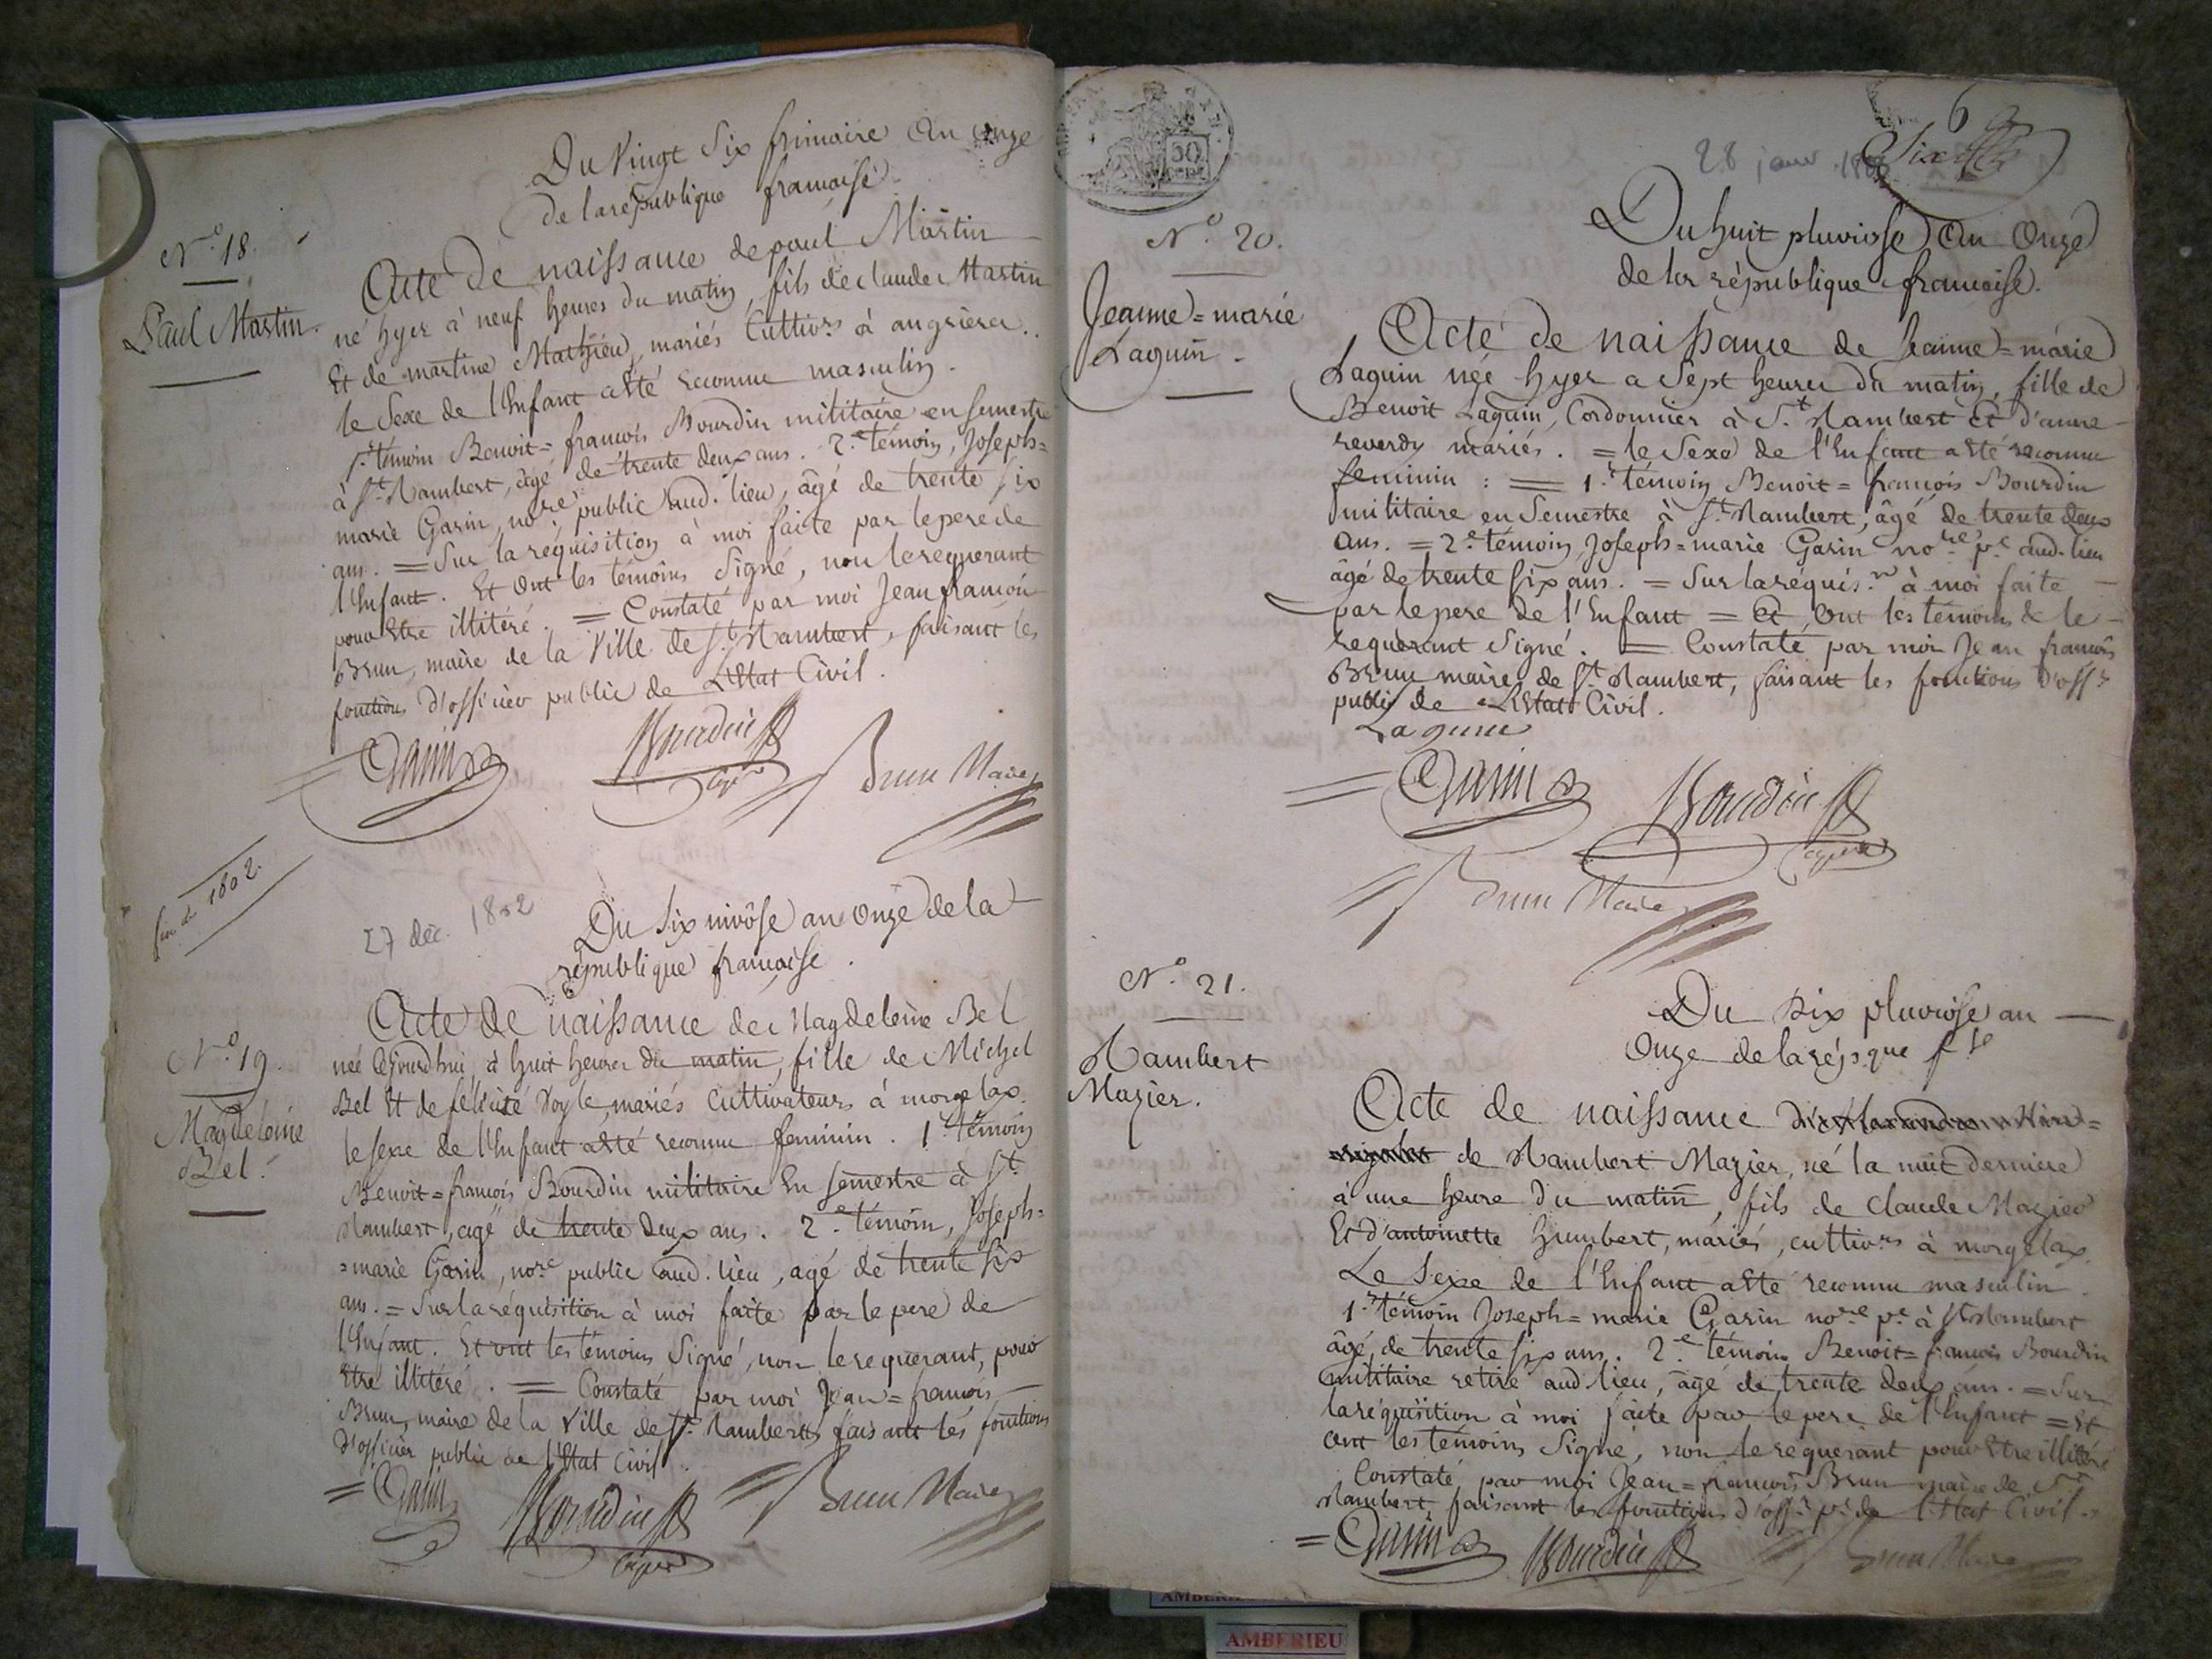 Du Vingt Six frimaire an onze
de la république francaise.
N.o 18.
Paul Martin.
Acte de naissance de paul Martin
né hyer à neuf heures du matin, fils de claude Martin
Et de martine Mathieu, mariés Cultiv.rs à angrieres.
le Sexe de l'Enfant a été reconnu masculin.
1.r témoin Benoit=francois Bourdin militaire en semestre
à S.t Rambert, âgé de trente deux ans. 2.e témoin, Joseph=
marie Garin, no.re public aud. lieu, âgé de trente six
ans. = Sur la réquisition à moi faite par le pere de
l'Enfant. Et ont les témoins Signé, non le requerant
pour Etre illitéré. = Constaté par moi Jean francois
Brun, maire de la Ville de S.t Rambert, faisant les
fonctions d'officier public de L'Etat Civil.
Garin
Bourdin
Brun Maire
fin de 1802.
27 déc. 1802
Du Six nivôse an onze de la
république francaise.
N.o 19.
Magdeleine
Bel.
Acte de naissance de Magdeleine Bel
née cejourdhui, à huit heures du matin, fille de Michel
Bel Et de félicité Doyle, mariés Cultivateurs à morgelas.
le sexe de l'Enfant a été reconnu feminin. 1.r témoin
Benoit=francois Bourdin militaire En semestre à S.t
Rambert, agé de trente deux ans. 2.e témoin, Joseph=
=marie Garin, no.re public aud. lieu, agé de trente six
ans. = Sur la réquisition à moi faite par le pere de
l'Enfant. Et ont les témoins Signé, non le requerant, pour
Etre illitéré. = Constaté par moi Jean=francois
Brun, maire de la Ville de S.t Rambert, faisant les fonctions
d'officier public de l'Etat Civil.
Garin
Bourdin
Brun Maire
50
6
Six
28 janv.
N.o 20.
Jeanne=marie
Laguin.
Du huit pluviose an Onze
de la république francaise.
Acte de naissance de Jeanne=marie
Laguin née hyer a Sept heures du matin, fille de
Benoit Laguin, Cordonnier à S.t Rambert Et d'anne
reverdy mariés. = le Sexe de l'Enfant a été reconnu
feminin : = 1.r témoin Benoit=francois Bourdin
militaire en Semestre à S.t Rambert, âgé de trente deux
ans. = 2.e témoin Joseph=marie Garin no.re p.c aud. lieu
âgé de trente six ans. = Sur la réquis.on à moi faite
par le pere de l'Enfant = Et ont les témoins & le
requerant Signé. = Constaté par moi Jean francois
Brun maire de S.t Rambert, faisant les fonctions d'off.r
public de L'Etat Civil.
Laguin
Garin
Bourdin
Brun Maire
N.o 21.
Rambert
Mazier.
Du Dix pluviose an
Onze de la rép.que f.se
Acte de naissance
de Rambert Mazier, né la nuit derniere
à une heure du matin, fils de Claude Mazier
Et d'antoinette humbert, mariés, cultiv.rs à morgelas.
Le Sexe de l'Enfant a été reconnu masculin.
1.r témoin Joseph=marie Garin no.re p.c à S.t Rambert
âgé de trente six ans. 2.e témoin Benoit=francois Bourdin
militaire retiré aud. lieu, âgé de trente deux ans. = Sur
la réquisition à moi faite par le pere de l'Enfant = Et
ont les témoins Signé, non le requerant pour Etre illitéré
Constaté par moi Jean=francois Brun maire de S.t
Rambert faisant les fonctions d'off.r p.c de l'Etat Civil.
Garin
Bourdin
Brun Maire
AMBERIEU